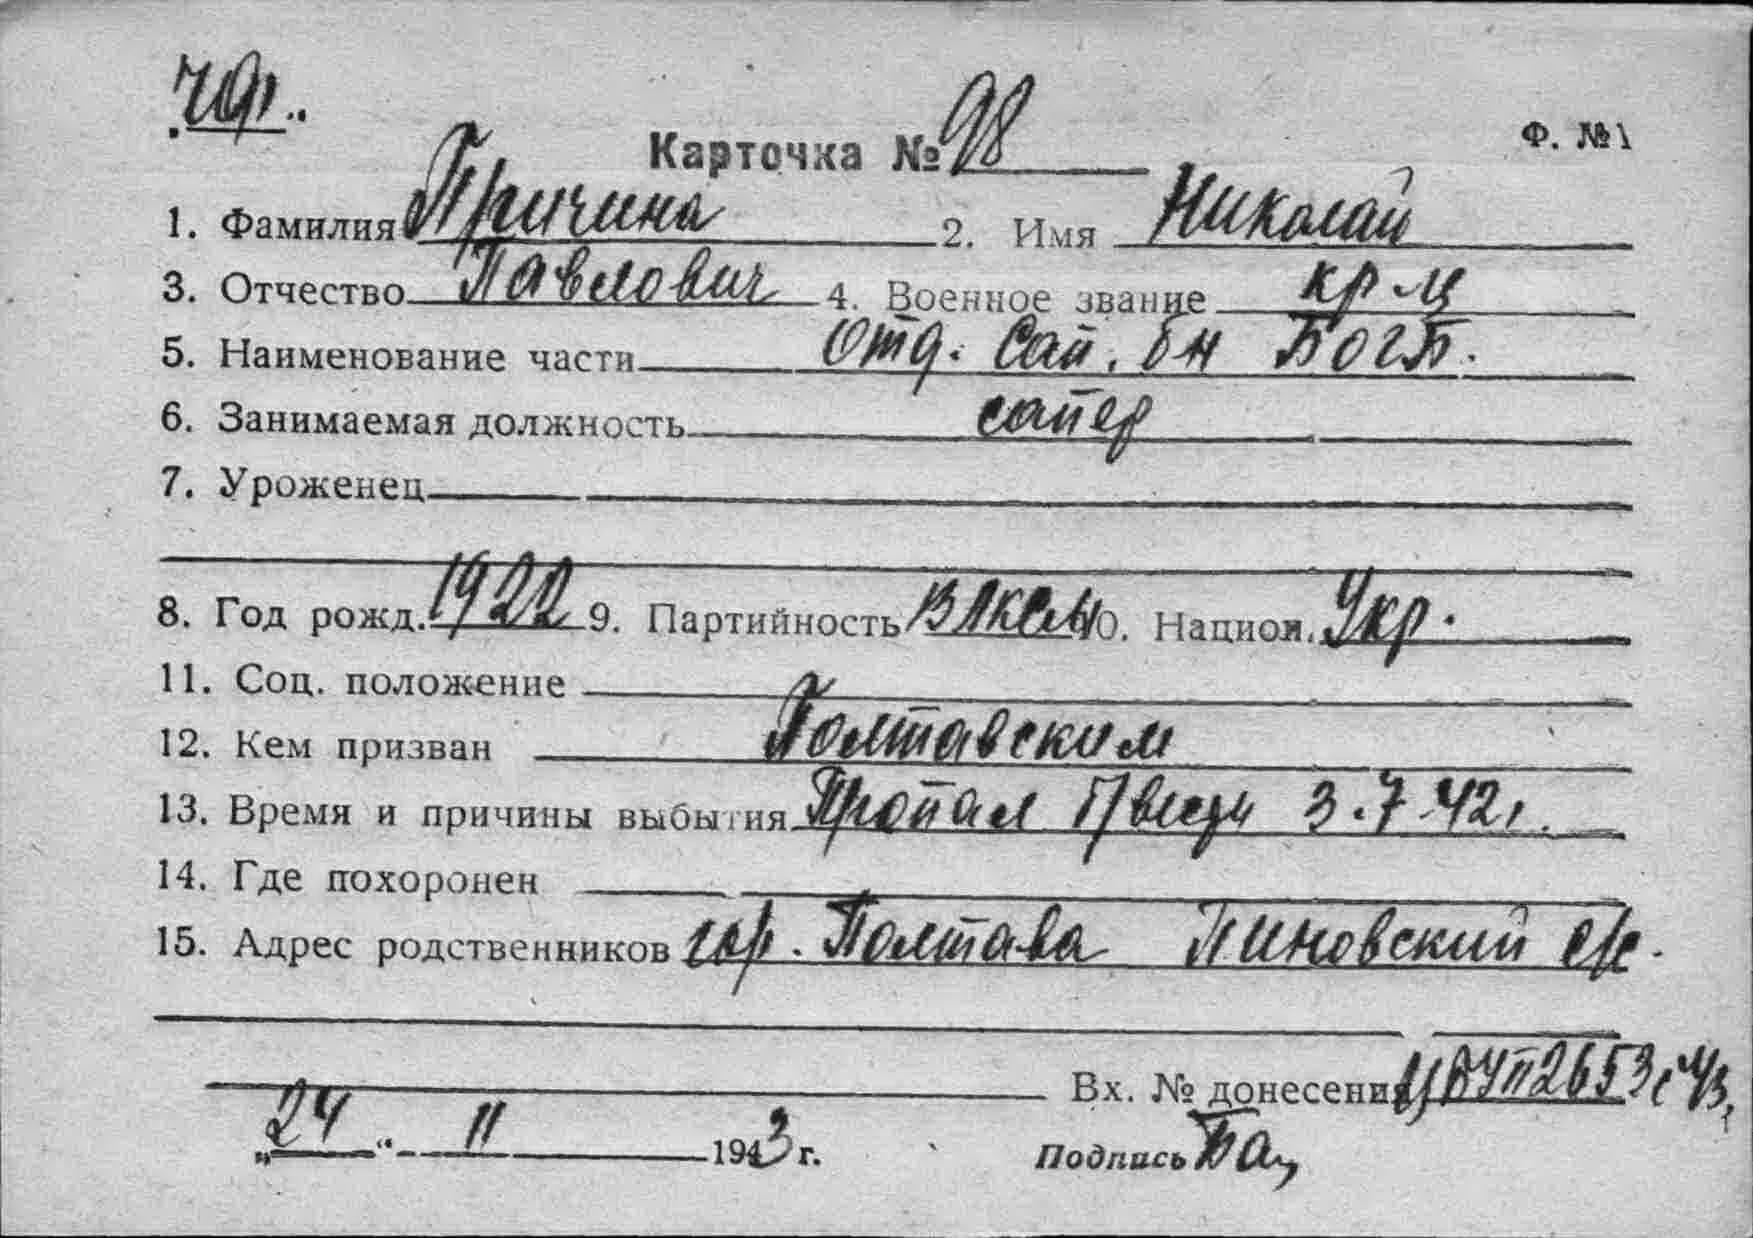 ЧФ
Карточка № 98
Ф. №1
1. Фамилия Причина 2. Имя Николай
3. Отчество Павлович 4. Военное звание кр-ц
5. Наименование части Отд. Сап. бн БОГБ.
6. Занимаемая должность сапер
7. Уроженец
8. Год рожд. 1922 9. Партийность ВЛКСМ 10. Национ. Укр.
11. Соц. положение
12. Кем призван Полтавским
13. Время и причины выбытия Пропал 3.7.42г.
14. Где похоронен
15. Адрес родственников гор. Полтава с/с.
Вх. № донесения 2653с 43
„24“ 11 1943 г. Подпись